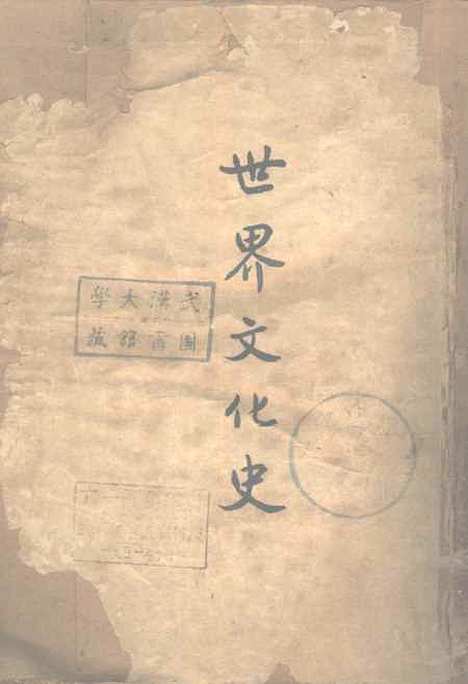 世界文化史
武漢大學
圖書館藏